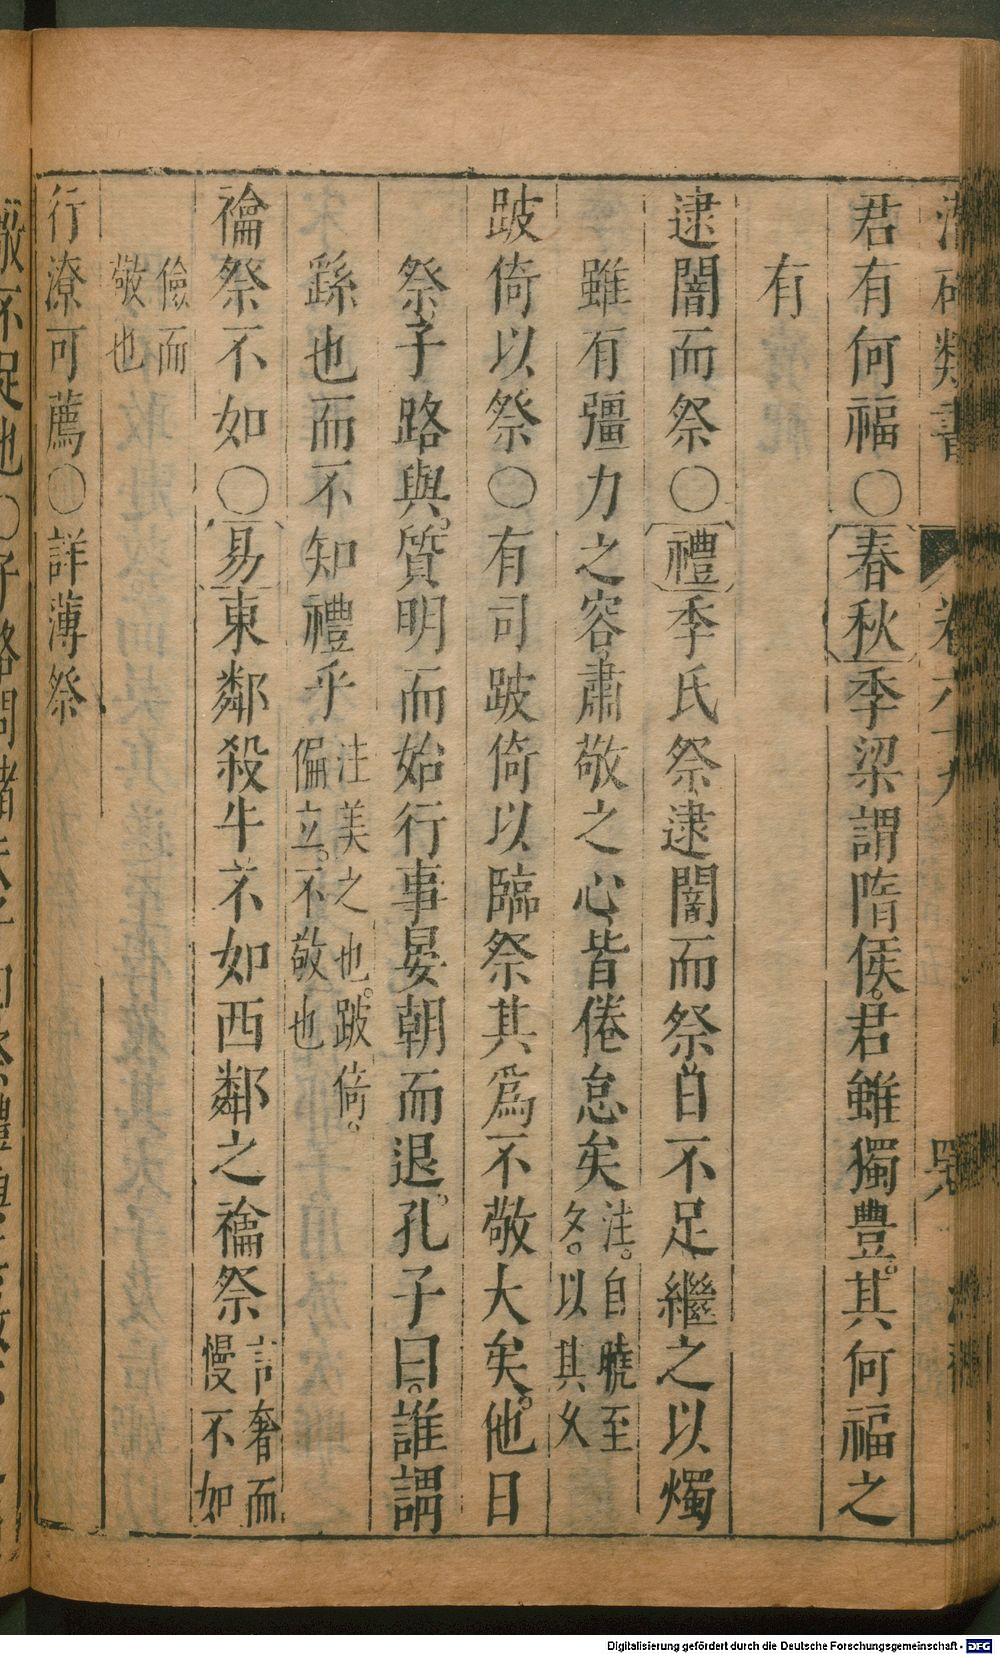 類書 卷六十九
君有何福○春秋季梁謂隋侯。君雖獨豊。其何福之
有
逮闇而祭○禮季氏祭、逮闇而祭、日不足繼之以燭
雖有彊力之容、肅敬之心、皆倦怠矣注。自曉至夕。以其久
跛倚以祭○有司跛倚以臨祭其爲不敬大矣。他日
祭、子路與。質明而始行事晏朝而退。孔子曰。誰謂
繇也而不知禮乎注美之也。跛倚。偏立。不敬也
禴祭不如○易東鄰殺牛不如西鄰之禴祭言奢而慢不如
儉而敬也
行潦可薦○詳薄祭
Digitalisierung gefördert durch die Deutsche Forschungsgemeinschaft - DFG